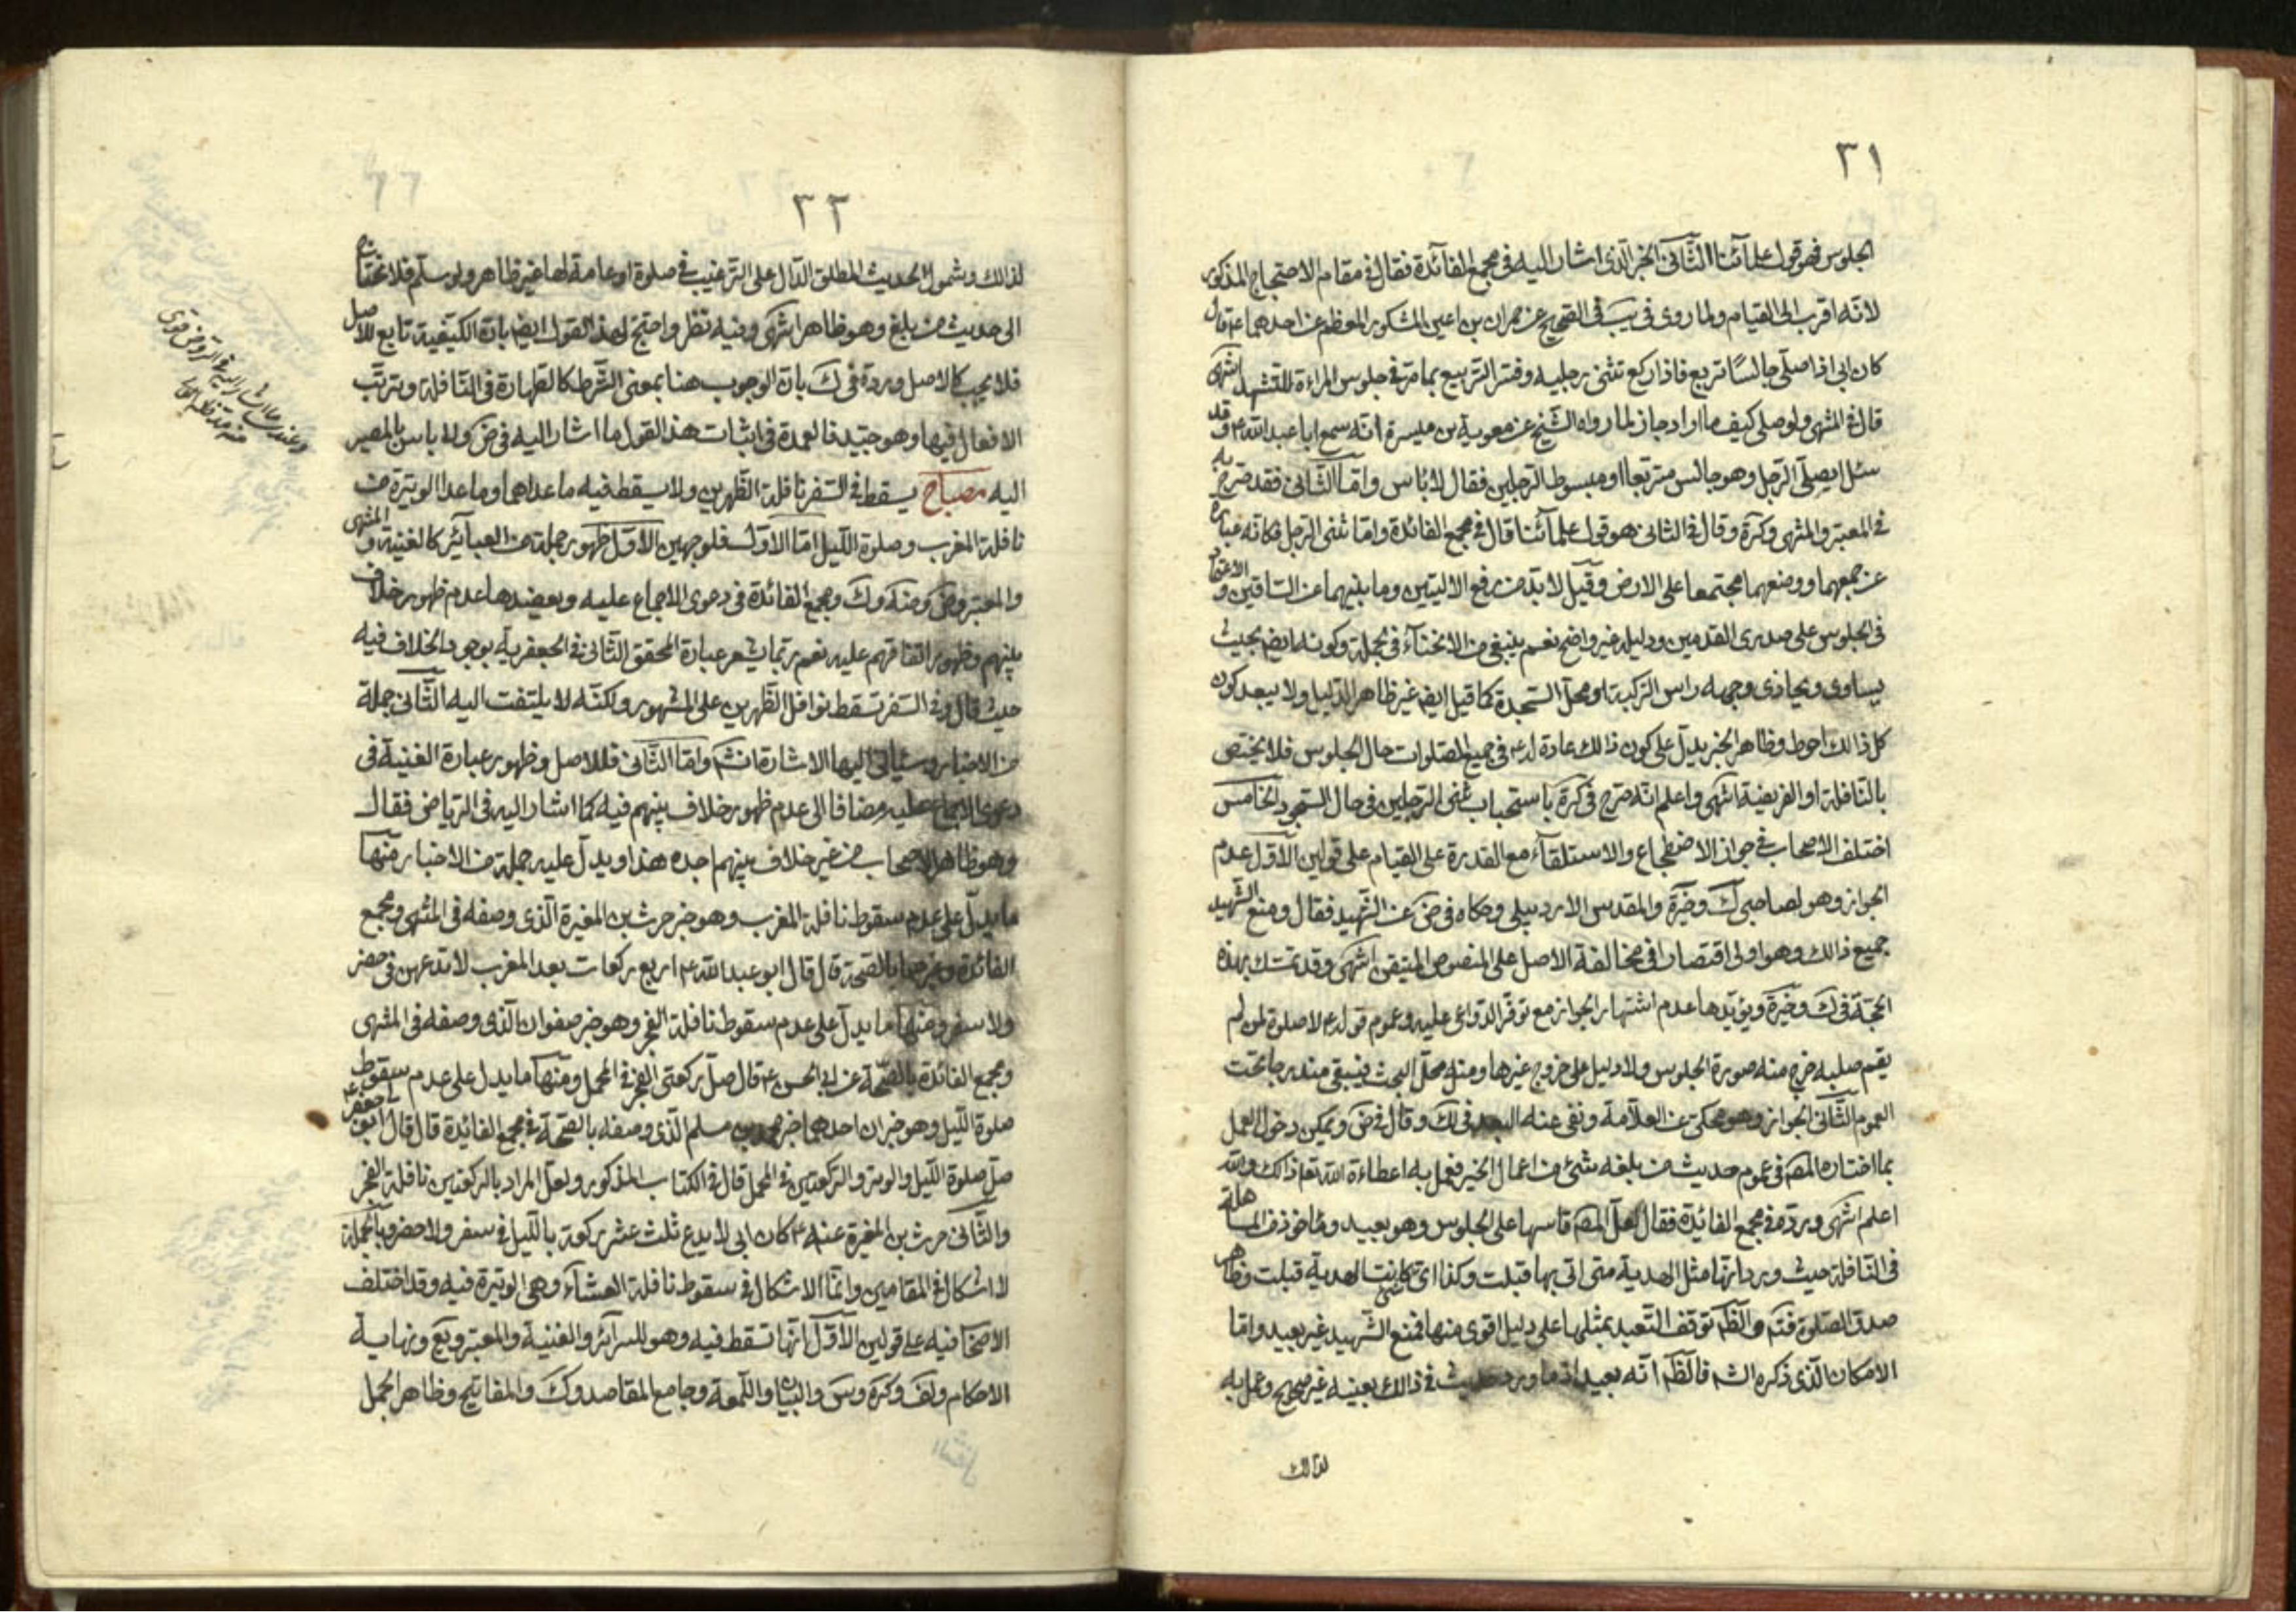 ٣١
الجلوس فهو قول علمآئنا الثّانى الخبر الّذى اشار اليه فى مجمع الفآئدة فقال فى مقام الاحتجاج المذكور
لانّه اقرب الى القيام ولما روى فى يب فى الصّحيح عن حمران بن اعين المشكور المعظم عن احدهما ع قال
كان ابى اذا صلّى جالسًا تربع فاذا ركع تثنى رجليه وفسّر التّربيع بما مرّ فى جلوس المراءة للتّشهد انتهى
قال فى المنتهى ولو صلى كيف ما اراد جاز لما رواه الشّيخ عن معوية بن ميسرة انّه سمع ابا عبد اللّه ع وقد
سئل ايصلّى الرّجل وهو جالس متربّعا او مبسوط الرّجلين فقال لا باس وامّا الثّانى فقد صرّح به
فى المعتبر والمنتهى وكرة وقال فى الثانى هو قول علمآئنا قال فى مجمع الفائدة وامّا ثنى الرّجل فكانّه عبارة
عن جمعهما ووضعهما مجتمعا على الارض وقيل لا بدّ من رفع الاليتين وما بينهما عن السّاقين والاعتماد
فى الجلوس على صدرى القدمين ودليله غير واضح نعم ينبغى من الانحناء فى الجملة وكونه ايضا بحيث
يساوى ويحاذى وجهه راس الرّكبة او محلّ السّجدة كما قيل ايضا غير ظاهر الدّليل ولا يبعد كون
كل ذالك احوط وظاهر الخبر يدلّ على كون ذالك عادة له ع فى جميع الصّلوات حال الجلوس فلا يختص
بالنّافلة او الفريضة انتهى واعلم انّه صرّح فى كرة باستحباب ثنى الرّجلين فى حال السّجود الخامس
اختلف الاصحاب فى جواز الاضطجاع والاستلقآء مع القدرة على القيام على قولين الاوّل عدم
الجواز وهو لصاحبى ك وخيرة والمقدس الاردبيلى وحكاه فى ض عن الشّهيد فقال ومنع الشّهيد
جميع ذالك وهو اولى اقتصارا فى مخالفة الاصل على المنصوص المتيقن انتهى وقد تمسّك بهذه
الحجّة فى ك وخيرة ويؤيّدها عدم اشتهار الجواز مع توفّر الدّواعى عليه وعموم قوله ع لا صلوة لمن لم
يقم صلبه خرج منه صورة الجلوس ولا دليل على خروج غيرها ومنه محلّ البحث فيبقى مندرجا تحت
العموم الثّانى الجواز وهو محكى عن العلاّمة ونفى عنه البعد فى ك وقال فى ض ويمكن دخول العمل
بما اختاره المص فى عموم حديث من بلغه شئ من اعمال الخير فعمل به اعطاءه اللّه تعم ذالك واللّه
اعلم انتهى وردّه فى مجمع الفائدة فقال لعلّ المص قاسها على الجلوس وهو بعيد وماخوذ من المساهلة
فى النّافلة حيث ورد انّها مثل الهدية متى اتى بها قبلت وكذا اىّ شئ كانت الهدية قبلت وظاهر
صدق الصّلوة فتم والظّم توقف التّعبد بمثلها على دليل اقوى منها فمنع الشّهيد غير بعيد وامّا
الامكان الّذى ذكره الشم فالظّم انّه بعيد اذ ما ورد حديث فى ذالك بعينه غير صحيح وعمل به
لذالك
٣٢
لذالك وشمول الحديث المطلق الدّال على التّرغيب فى صلوة او عامة لها غير ظاهر ولو سلّم فلا نحتاج
الى حديث من بلغ وهو ظاهر انتهى وفيه نظر واحتج لهذا القول ايضا بانّ الكيفية تابع للاصل
فلا يجب كالاصل وردّه فى ك بانّ الوجوب هنا بمعنى الشّرط كالطّهارة فى النّافلة وترتّب
الافعال فيها وهو جيّد فالعمدة فى اثبات هذا القول ما اشار اليه فى ض ولا باس بالمصير
اليه مصباح يسقط فى السّفر نافلة الظّهرين ولا يسقط فيه ما عداهما وما عدا الوتيرة من
نافلة المغرب وصلوة اللّيل امّا الاوّل فلوجهين الاوّل ظهور جملة من العبآئر كالغنية والمنتهى
والمعتبر وض وضه وك ومجمع الفائدة فى دعوى الاجماع عليه ويعضدها عدم ظهور خلاف
بينهم وظهور اتفاقهم عليه نعم ربّما يشعر عبارة المحقق الثّانى فى الجعفرية بوجود الخلاف فيه
حيث قال وفى السّفر تسقط نوافل الظّهرين على المشهور ولكنّه لا يلتفت اليه الثّانى جملة
من الاخبار وسياتى اليها الاشارة انشم وامّا الثّانى فللاصل وظهور عبارة الغنية فى
دعوى الاجماع عليه مضافا الى عدم ظهور خلاف بينهم فيه كما اشار اليه فى الرّياض فقال
وهو ظاهر الاصحاب من غير خلاف بينهم اجده هذا ويدلّ عليه جملة من الاخبار منها
ما يدلّ على عدم سقوط نافلة المغرب وهو خبر حرث بن المغيرة الّذى وصفه فى المنتهى ومجمع
الفائدة وغيرهما بالصّحة قال قال ابو عبد اللّه ع اربع ركعات بعد المغرب لا تدعهن فى حضر
ولا سفر ومنها ما يدلّ على عدم سقوط نافلة الفجر وهو خبر صفوان الّذى وصفه فى المنتهى
ومجمع الفائدة بالصّحة عن ابى الحسن ع قال صلّ ركعتى الفجر فى المحمل ومنها ما يدل على عدم سقوط
صلوة اللّيل وهو خبران احدهما خبر محمد بن مسلم الّذى وصفه بالصّحة فى مجمع الفائدة قال قال ابو جعفر ع
صلّ صلوة اللّيل والوتر والرّكعتين فى المحمل قال فى الكتاب المذكور ولعلّ المراد بالركعتين نافلة الفجر
والثّانى حرث بن المغيرة عنه ع كان ابى لا يدع ثلث عشر ركعة بالّليل فى سفر ولا حضر وبالجملة
لا اشكال فى المقامين وانّما الاشكال فى سقوط نافلة العشآء وهى الوتيرة فيه وقد اختلف
الاصحا فيه على قولين الاوّل انّها تسقط فيه وهو للسرائر والغنية والمعتبر ويع ونهاية
الاحكام ولف وكرة وس والبيان واللّمعة وجامع المقاصد وك والمفاتيح وظاهر الجمل